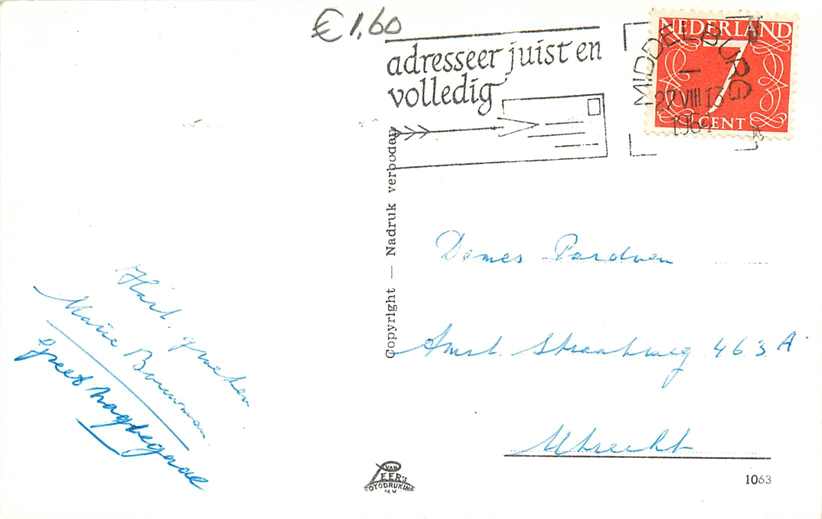 € 1,60
adresseer juist en
volledig
NEDERLAND
7
CENT
MIDDELBURG
1
27 VIII 13
1964
Copyright — Nadruk verboden
Dames Pardoen
Amst. Straatweg 463 A
Utrecht
Hart. groeten
Marie Bouwman
Greet Nagtegaal
VAN
LEER'S
FOTODRUKIND.
N.V.
1063